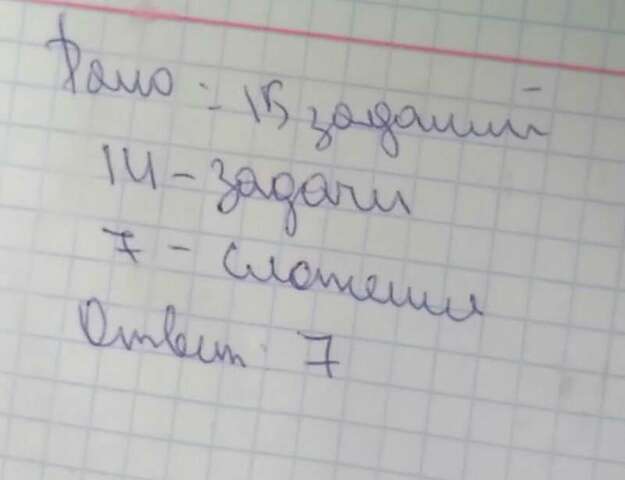 Дано: 15 заданий
14 - задачи
7 - сложения
Ответ: 7